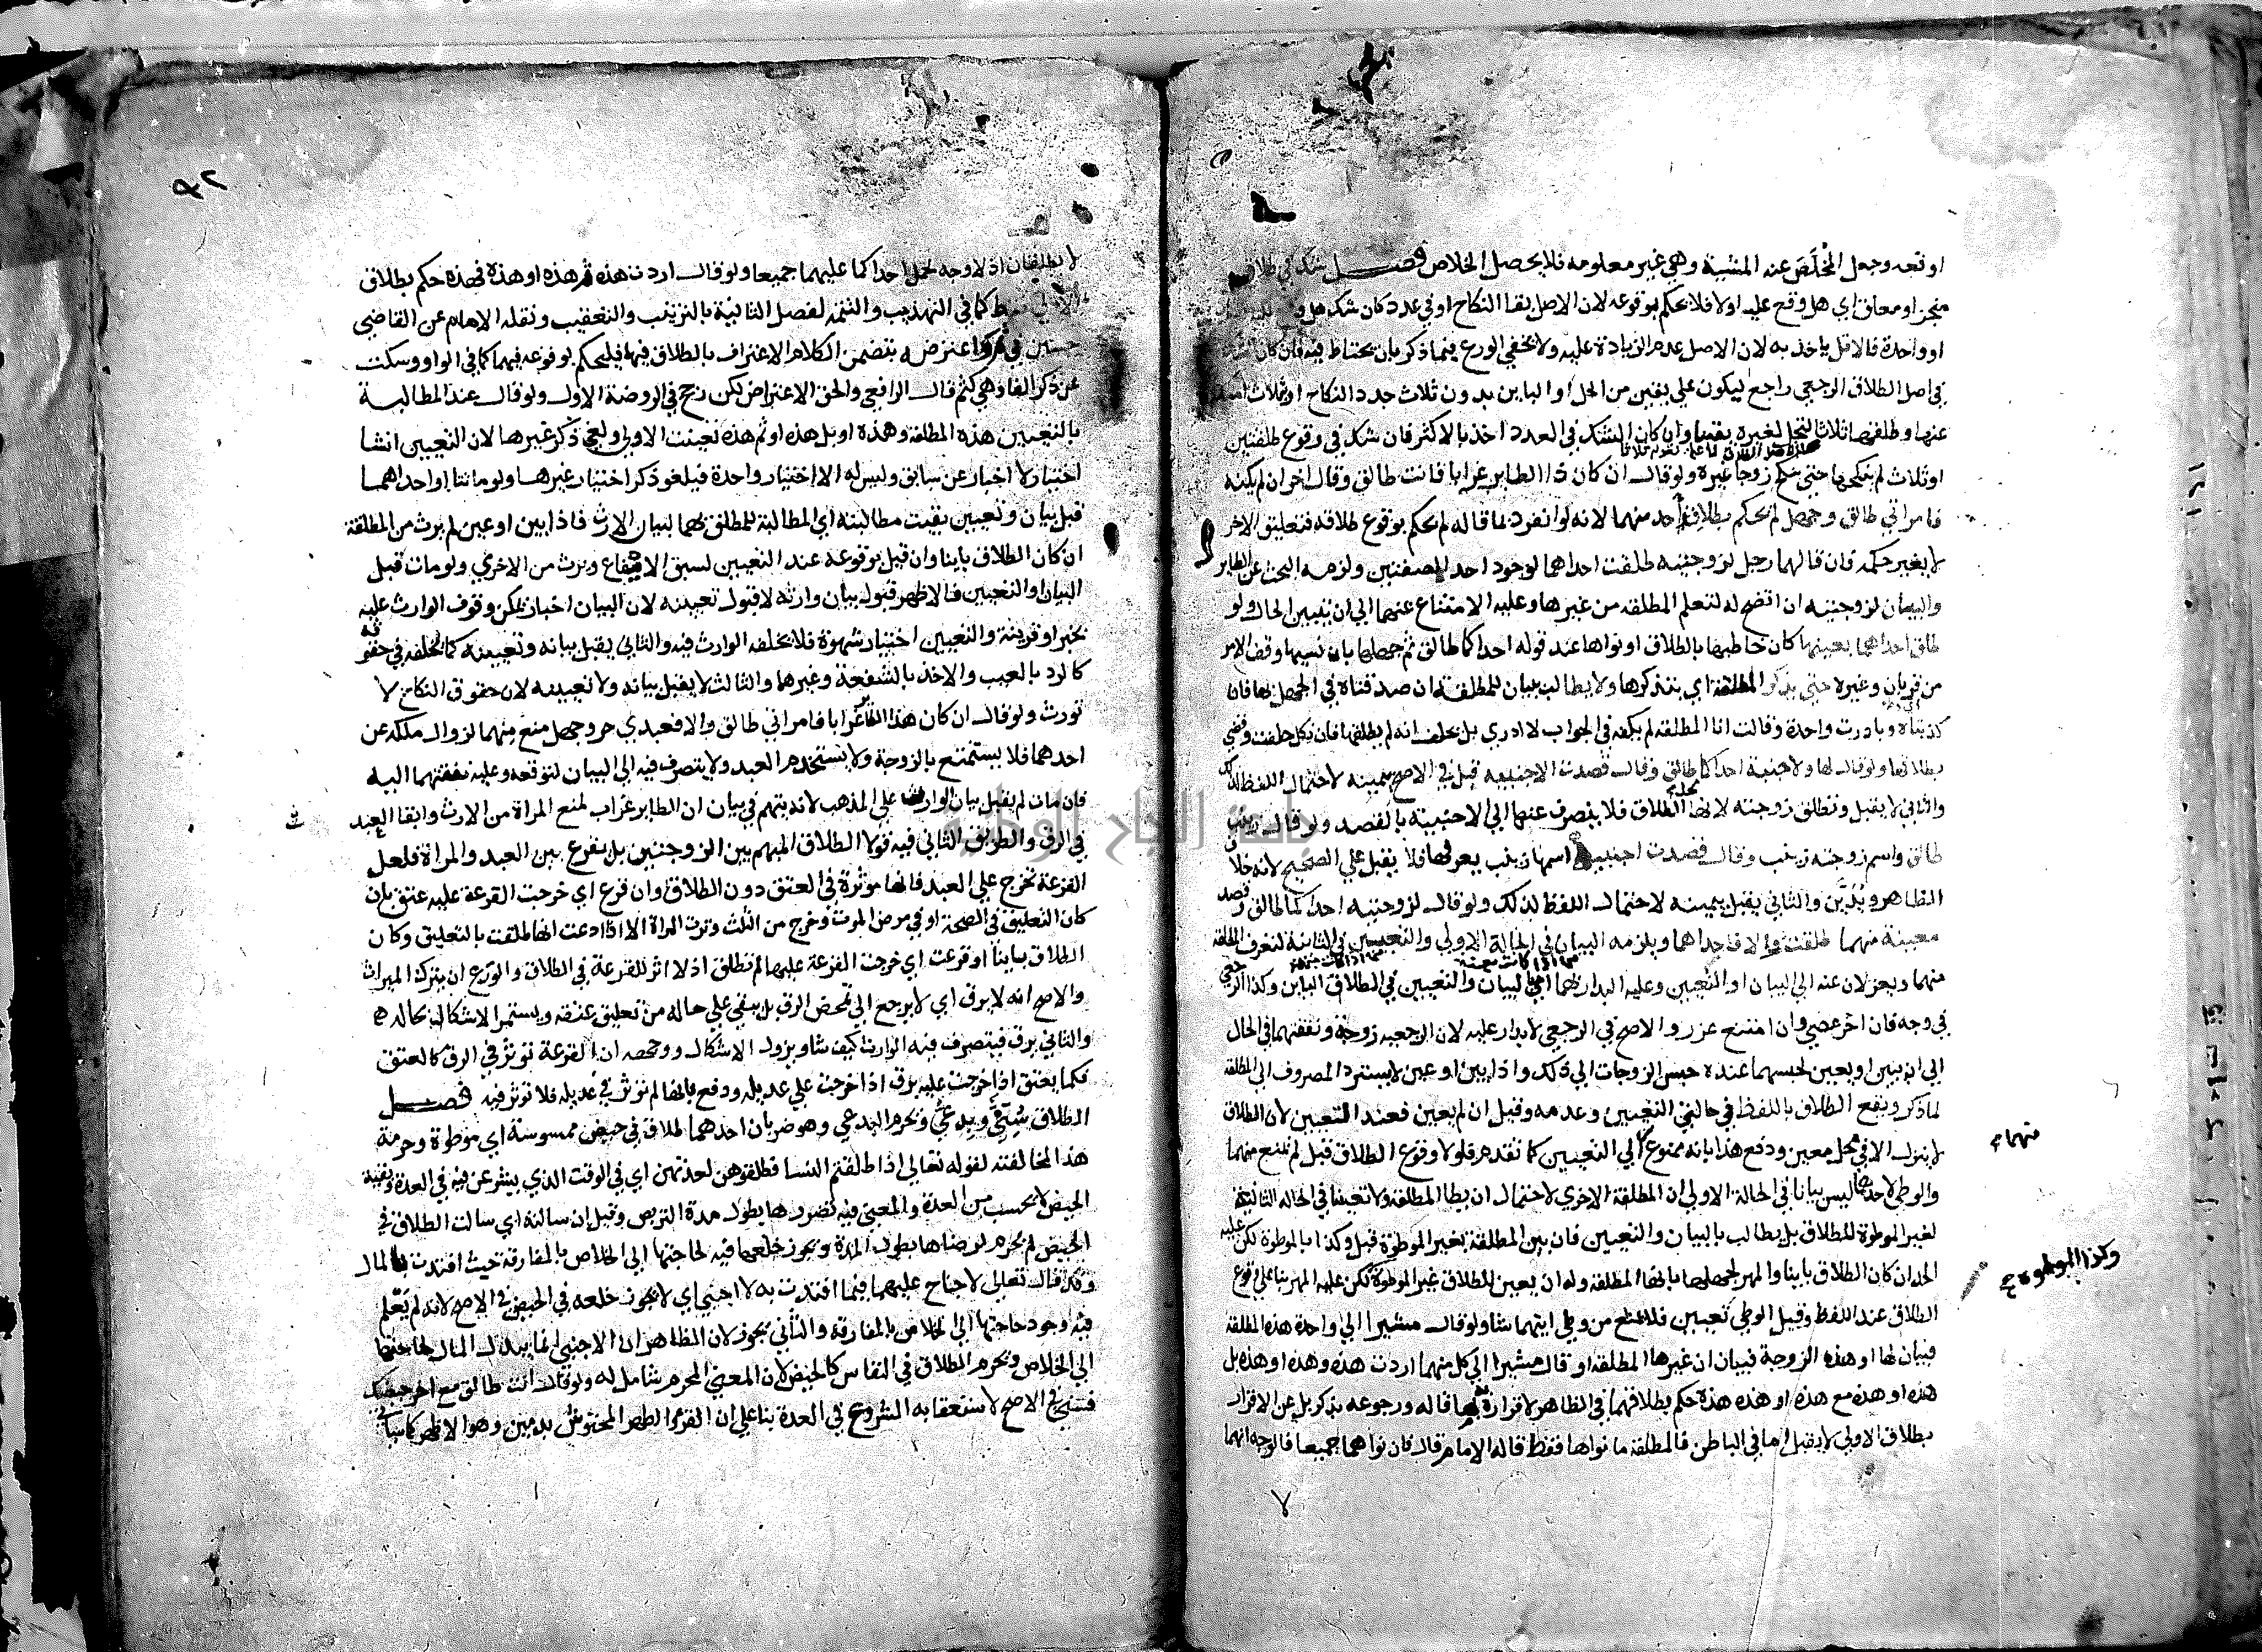 اوقعه وجعل المخلَّص عنه المشية وهي غير معلومه فلا يحصل الخلاص فصل شك في طلاق
منجز او معلق اي هل وقع عليه اولا فلا يحكم بوقوعه لان الاصل بقا النكاح او في عدد كان شك هل
او واحدة فالاقل ياخذ به لان الاصل عدم الزيادة عليه ولا يخفي الورع فيما ذكر بان يحتاط فيه فان كان الشك
في اصل الطلاق الرجعي راجع ليكون علي يقين من الحل او الباين بدون ثلاث جدد النكاح او بثلاث امسك
عنها وطلقها ثلاثا لتحل لغيره يقينا وان كان الشك في العدد اخذ بالاكثر فان شك في وقوع طلقتين
او ثلاث لم ينكحها حتي تنكح زوجا غيره ولو قال ان كان ذا الطاير غرابا فانت طالق وقال اخر ان لم يكنه
فامراتي طالق وجهل لم يحكم بطلاق احد منهما لانه لو انفرد بما قاله لم يحكم بوقوع طلاقه فتعليق الاخر
لا يغير حكمه فان قالهما رجل لزوجتيه طلقت احداهما لوجود احد الصفتين ولزمه البحث عن الطاير
والبيان لزوجتيه ان اتضح له لتعلم المطلقه من غيرها وعليه الامتناع عنهما الي ان يتبين الحال ولو
طلق احداهما بعينها كان خاطبها بالطلاق او نواها عند قوله احداكما طالق ثم جهلها بان نسيها وقف الامر
من قربان وغيره حتي يذكر المطلقة اي يتذكرها ولا يطالب ببيان للمطلقة ان صدقتاه في الجهل بها فان
كذبتاه وبادرت واحدة وقالت انا المطلقه لم يكفه في الجواب لا ادري بل يحلف انه لم يطلقها فان نكل حلفت وقضي
بطلاقها ولو قال لها ولاجنبية احداكما طالق وقال قصدت الاجنبيه قبل في الاصح بيمينه لاحتمال اللفظ لذلك
والثاني لا يقبل وتطلق زوجته لانها الطلاق فلا ينصرف عنها الي الاجنبية بالقصد ولو قال زينب
طالق واسم زوجته زينب وقال قصدت اجنبية اسمها زينب يعرفها فلا يقبل علي الصحيح لانه خلاف
الظاهر ويُدَيَّن والثاني يقبل بيمينه لاحتمال اللفظ لذلك ولو قال لزوجتيه احداكما طالق وقصد
معينة منهما طلقت والا فاحداهما ويلزمه البيان في الحالة الاولي والتعيين في الثانية لتعرف المطلقة
منهما ويعزلان عنه الي البيان او التعيين وعليه البدار بهما اي البيان والتعيين في الطلاق الباين وكذا الرجعي
في وجه فان اخر عصي وان امتنع عزر والاصح في الرجعي لا بدار عليه لان الرجعيه زوجة ونفقتهما في الحال
الي ان يبين او يعين لحبسهما عنده حبس الزوجات الي ذلك واذا بين او عين لا يسترد المصروف الي المطلقة
لما ذكر ويقع الطلاق باللفظ في حالتي التعيين وعدمه وقيل ان لم يعين فعند التعيين لان الطلاق
لا ينزل الا في محل معين ودفع هذا بانه ممنوع الي التعيين كما تقدم فلولا وقوع الطلاق قبل لم تمنع منهما
والوطي لاحداهما ليس بيانا في الحالة الاولي ان المطلقة الاخري لاحتمال ان يطا المطلقة ولا تعيينا في الحاله الثانية
لغير الموطوة للطلاق بل يطالب بالبيان والتعيين فان بين المطلقة بغير الموطوة قبل وكذا بالموطوة لكن عليه
الحد ان كان الطلاق باينا والمهر لجهلها بانها المطلقه وله ان يعين للطلاق غير الموطوة لكن عليه المهر بنا علي وقوع
الطلاق عند اللفظ وقيل الوطي تعيين فلا يمنع من وطي ايتهما شا ولو قال مشيرا الي واحدة هذه المطلقة
فبيان لها او هذه الزوجة فبيان ان غيرها المطلقه او قال مشيرا الي كل منهما اردت هذه وهذه او هذه بل
هذه او هذه مع هذه او هذه هذة حكم بطلاقهما في الظاهر لاقراره بما قاله ورجوعه بذكر بل عن الاقرار
بطلاق الاولي لا يقبل اما في الباطن فالمطلقة ما نواها فقط قاله الامام قال فان نواهما جميعا فالوجه انهما
منهما
وكذا الموطوة
٩٢
لا يطلقان اذ لا وجه لحمل احداكما عليهما جميعا ولو قال اردت هذه ثم هذه او هذه فهذه حكم بطلاق
الاولي فقط كما في التهذيب والتتمه لفصل الثانية بالترتيب والتعقيب ونقله الامام عن القاضي
حسين في واعترضه بتضمن الكلام الاعتراف بالطلاق فيهما فليحكم بوقوعه فيهما كما في الواو وسكت
عن ذكر الفا وهي كثم قال الرافعي والحق الاعتراض لكن رجح في الروضة الاول ولو قال عند المطالبة
بالتعيين هذه المطلقة وهذه او بل هذه او ثم هذه تعينت الاولي ولغي ذكر غيرها لان التعيين انشا
اختيار لا اخبار عن سابق وليس له الا اختيار واحدة فيلغو ذكر اختيار غيرها ولو ماتتا او احداهما
قبل بيان وتعيين بقيت مطالبته اي المطالبة للمطلق بهما لبيان الارث فاذا بين او عين لم يرث من المطلقة
ان كان الطلاق باينا وان قيل بوقوعه عند التعيين لسبق الايقاع ويرث من الاخري ولو مات قبل
البيان او التعيين فالاظهر قبول بيان وارثه لا قبول تعيينه لان البيان اخبار يمكن وقوف الوارث عليه
بخبر او قرينة والتعيين اختيار شهوة فلا يخلفه الوارث فيه والثاني يقبل بيانه وتعيينه كما يخلفه في حقوقه
كالرد بالعيب والاخذ بالشفعة وغيرهما والثالث لا يقبل بيانه ولا تعيينه لان حقوق النكاح لا
تورث ولو قال ان كان هذا الطاير غرابا فامراتي طالق والا فعبدي حر وجهل منع منهما لزوال ملكه عن
احدهما فلا يستمتع بالزوجة ولا يستخدم العبد ولا يتصرف فيه الي البيان لتوقعه وعليه نفقتهما اليه
فان مات لم يقبل بيان الوارث علي المذهب لانه يتهم في بيان ان الطاير غراب لمنع المراة من الارث وابقا العبد
في الرق والطريق الثاني فيه قولا الطلاق المبهم بين الزوجتين بل يقرع بين العبد والمراة فلعل
القرعة تخرج علي العبد فانها موثرة في العتق دون الطلاق وان قرع اي خرجت القرعة عليه عتق بان
كان التعليق في الصحة او في مرض الموت وخرج من الثلث وترث المراة الا اذا ادعت انها طلقت بالتعليق وكان
الطلاق باينا او قرعت اي خرجت القرعة عليها لم تطلق اذ لا اثر للقرعة في الطلاق والورع ان يترك الميراث
والاصح انه لا يرق اي لا يرجع الي تمحض الرق بل يبقي علي حاله من تعليق عتقه ويستمر الاشكال بحاله
والثاني يرق فيتصرف فيه الوارث كيف شا ويزول الاشكال ووجهه ان القرعة توثر في الرق كالعتق
فكما يعتق اذا خرجت عليه يرق اذا خرجت علي عديله ودفع بانها لم توثر في عديله فلا توثر فيه فصل
الطلاق سُنِّيٌّ وبِدعيٌّ ويحرم البدعي وهو ضربان احدهما طلاق في حيض ممسوسة اي موطوة وحرمة
هذا لمخالفته لقوله تعالي اذا طلقتم النسا فطلقوهن لعدتهن اي في الوقت الذي يشرعن فيه في العدة وبقية
الحيض لا تحسب من العدة والمعني فيه تضررها بطول مدة التربص وقيل ان سالته اي سالت الطلاق في
الحيض لم يحرم لرضاها بطول المدة ويجوز خلعها فيه لحاجتها الي الخلاص بالمفارقة حيث افتدت بالمال
وقد قال تعالي لا جناح عليهما فيما افتدت به لا اجنبي اي لا يجوز خلعه في الحيض في الاصح لانه لم يُعْلم
فيه وجود حاجتها الي الخلاص بالمفارقة والثاني يجوز لان الظاهر ان الاجنبي انما يبذل المال لحاجتها
الي الخلاص ويحرم الطلاق في النفاس كالحيض لان المعني المحرم شامل له ولو قال انت طالق مع اخر حيضك
فسني في الاصح لاستعقابه الشروع في العدة بنا علي ان القرء الطهر المحتوش بدمين وهو الاظهر كما سياتي
جامعة النجاح الوطنية